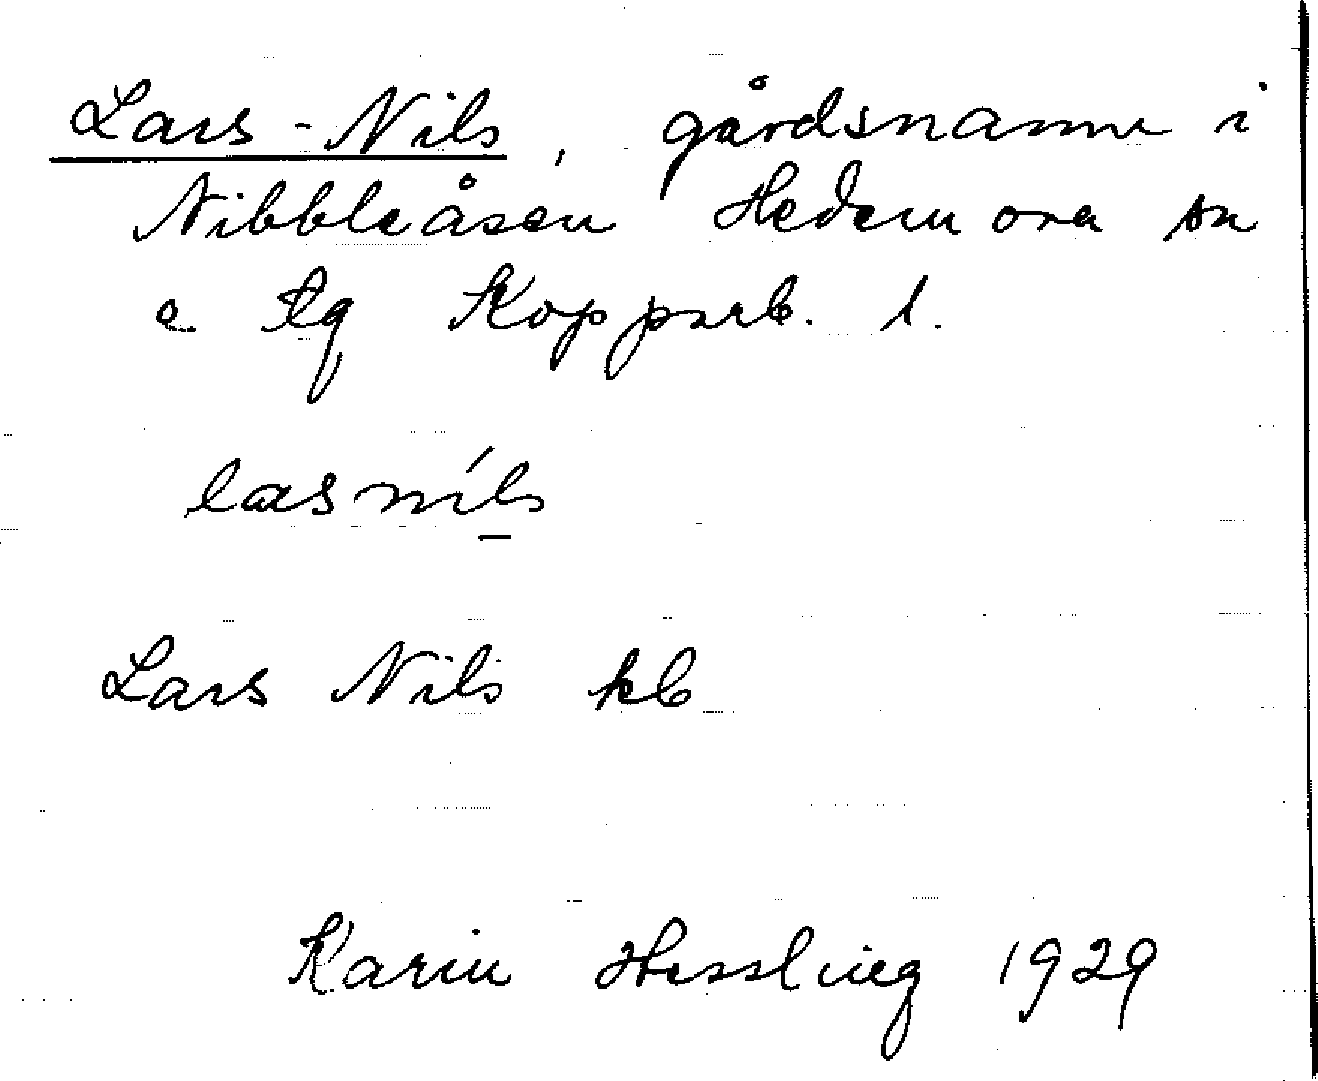 Lars-Nils, gårdsnamn i
Nibbleåsen Hedemora sn
o tg Kopparb. l.
lasníls
Lars Nils kb
Karin Hessling 1929